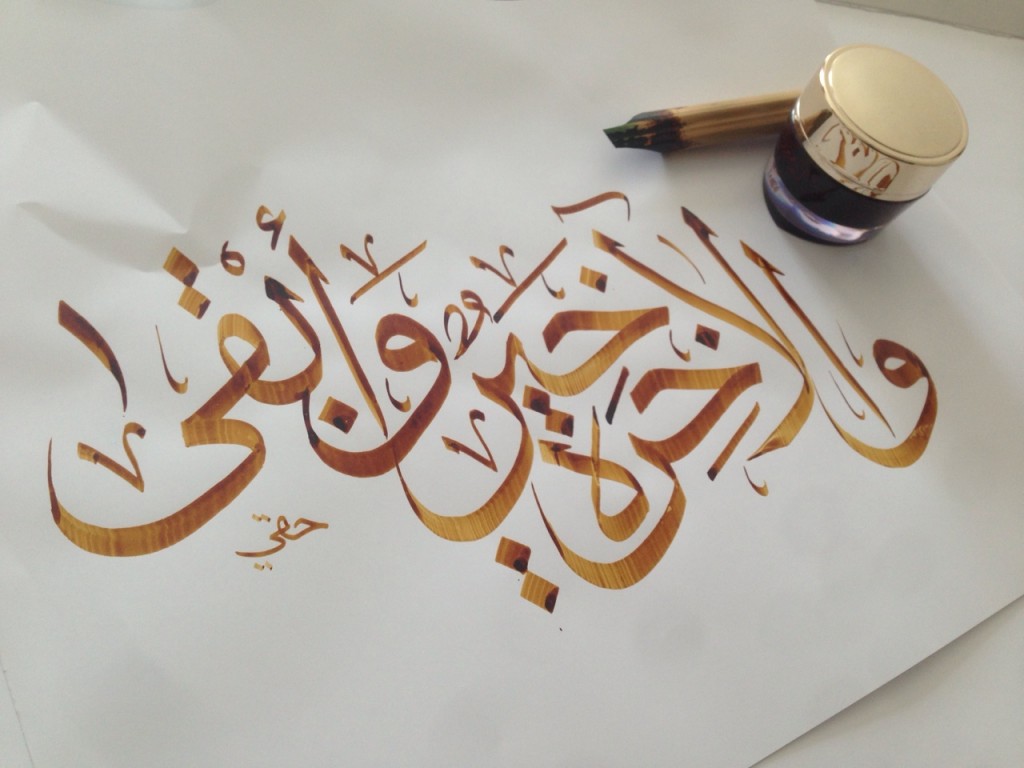 وَالْآخِرَةُ خَيْرٌ وَأَبْقَى
حقي